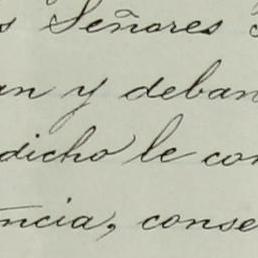 s Señores
an y deban
dicho le con
ncia, conse